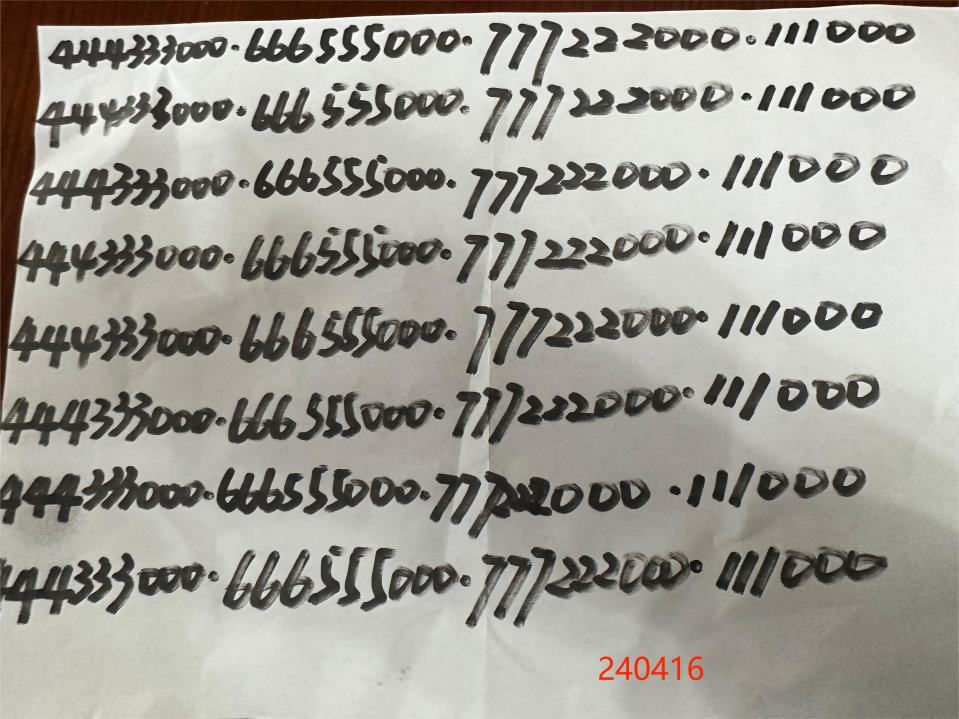 444333000.666555000.777222000.111000
444333000.666555000.777222000.111000
444333000.666555000.777222000.111000
444333000.666555000.777222000.111000
444333000.666555000.777222000.111000
444333000.666555000.777222000.111000
444333000.666555000.777222000.111000
444333000.666555000.777222000.111000
240416